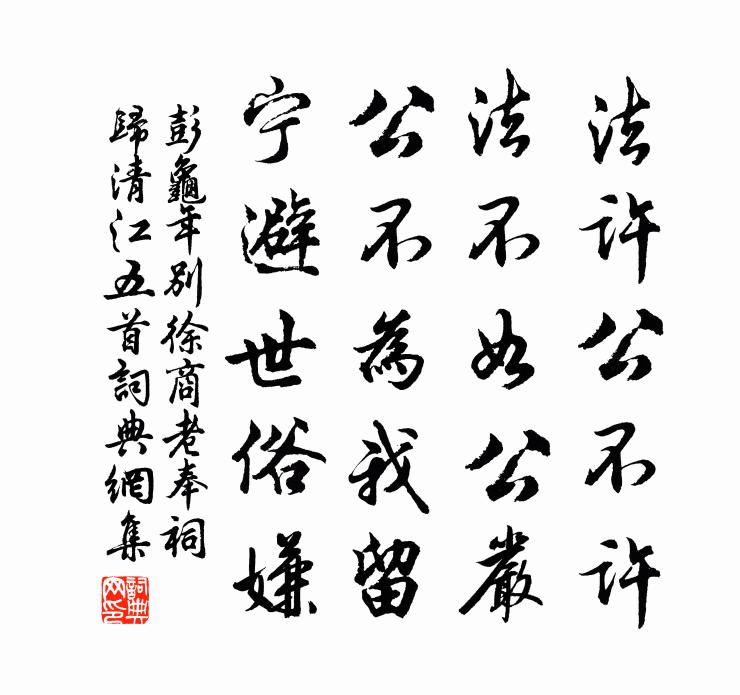 法許公不許
法不如公嚴
公不為我留
宁避世俗嫌
彭龜年別徐商老奉祠
歸清江五首詞典網集
詞典網印